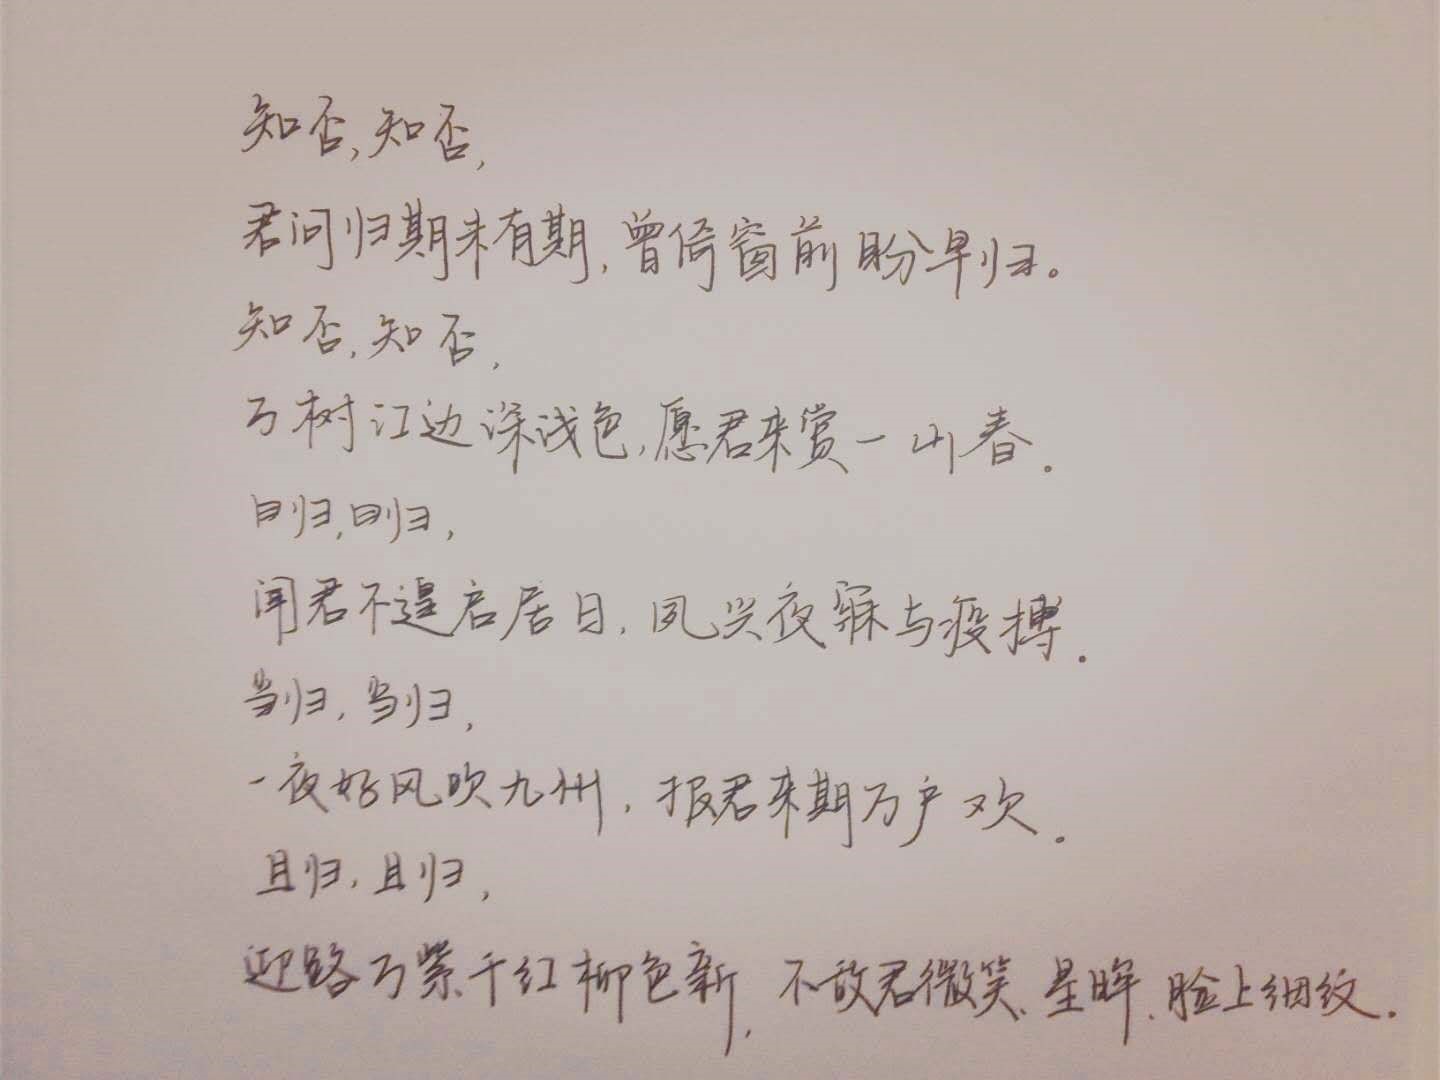 知否,知否,
君问归期未有期,曾倚窗前盼早归。
知否,知否,
万树江边深浅色,愿君来赏一山春.
曰归,曰归,
闻君不遑启居日,夙兴夜寐与疫搏.
当归,当归,
一夜好风吹九州,报君来期万户欢.
且归,且归,
迎路万紫千红柳色新,不敌君微笑、星眸、脸上细纹.